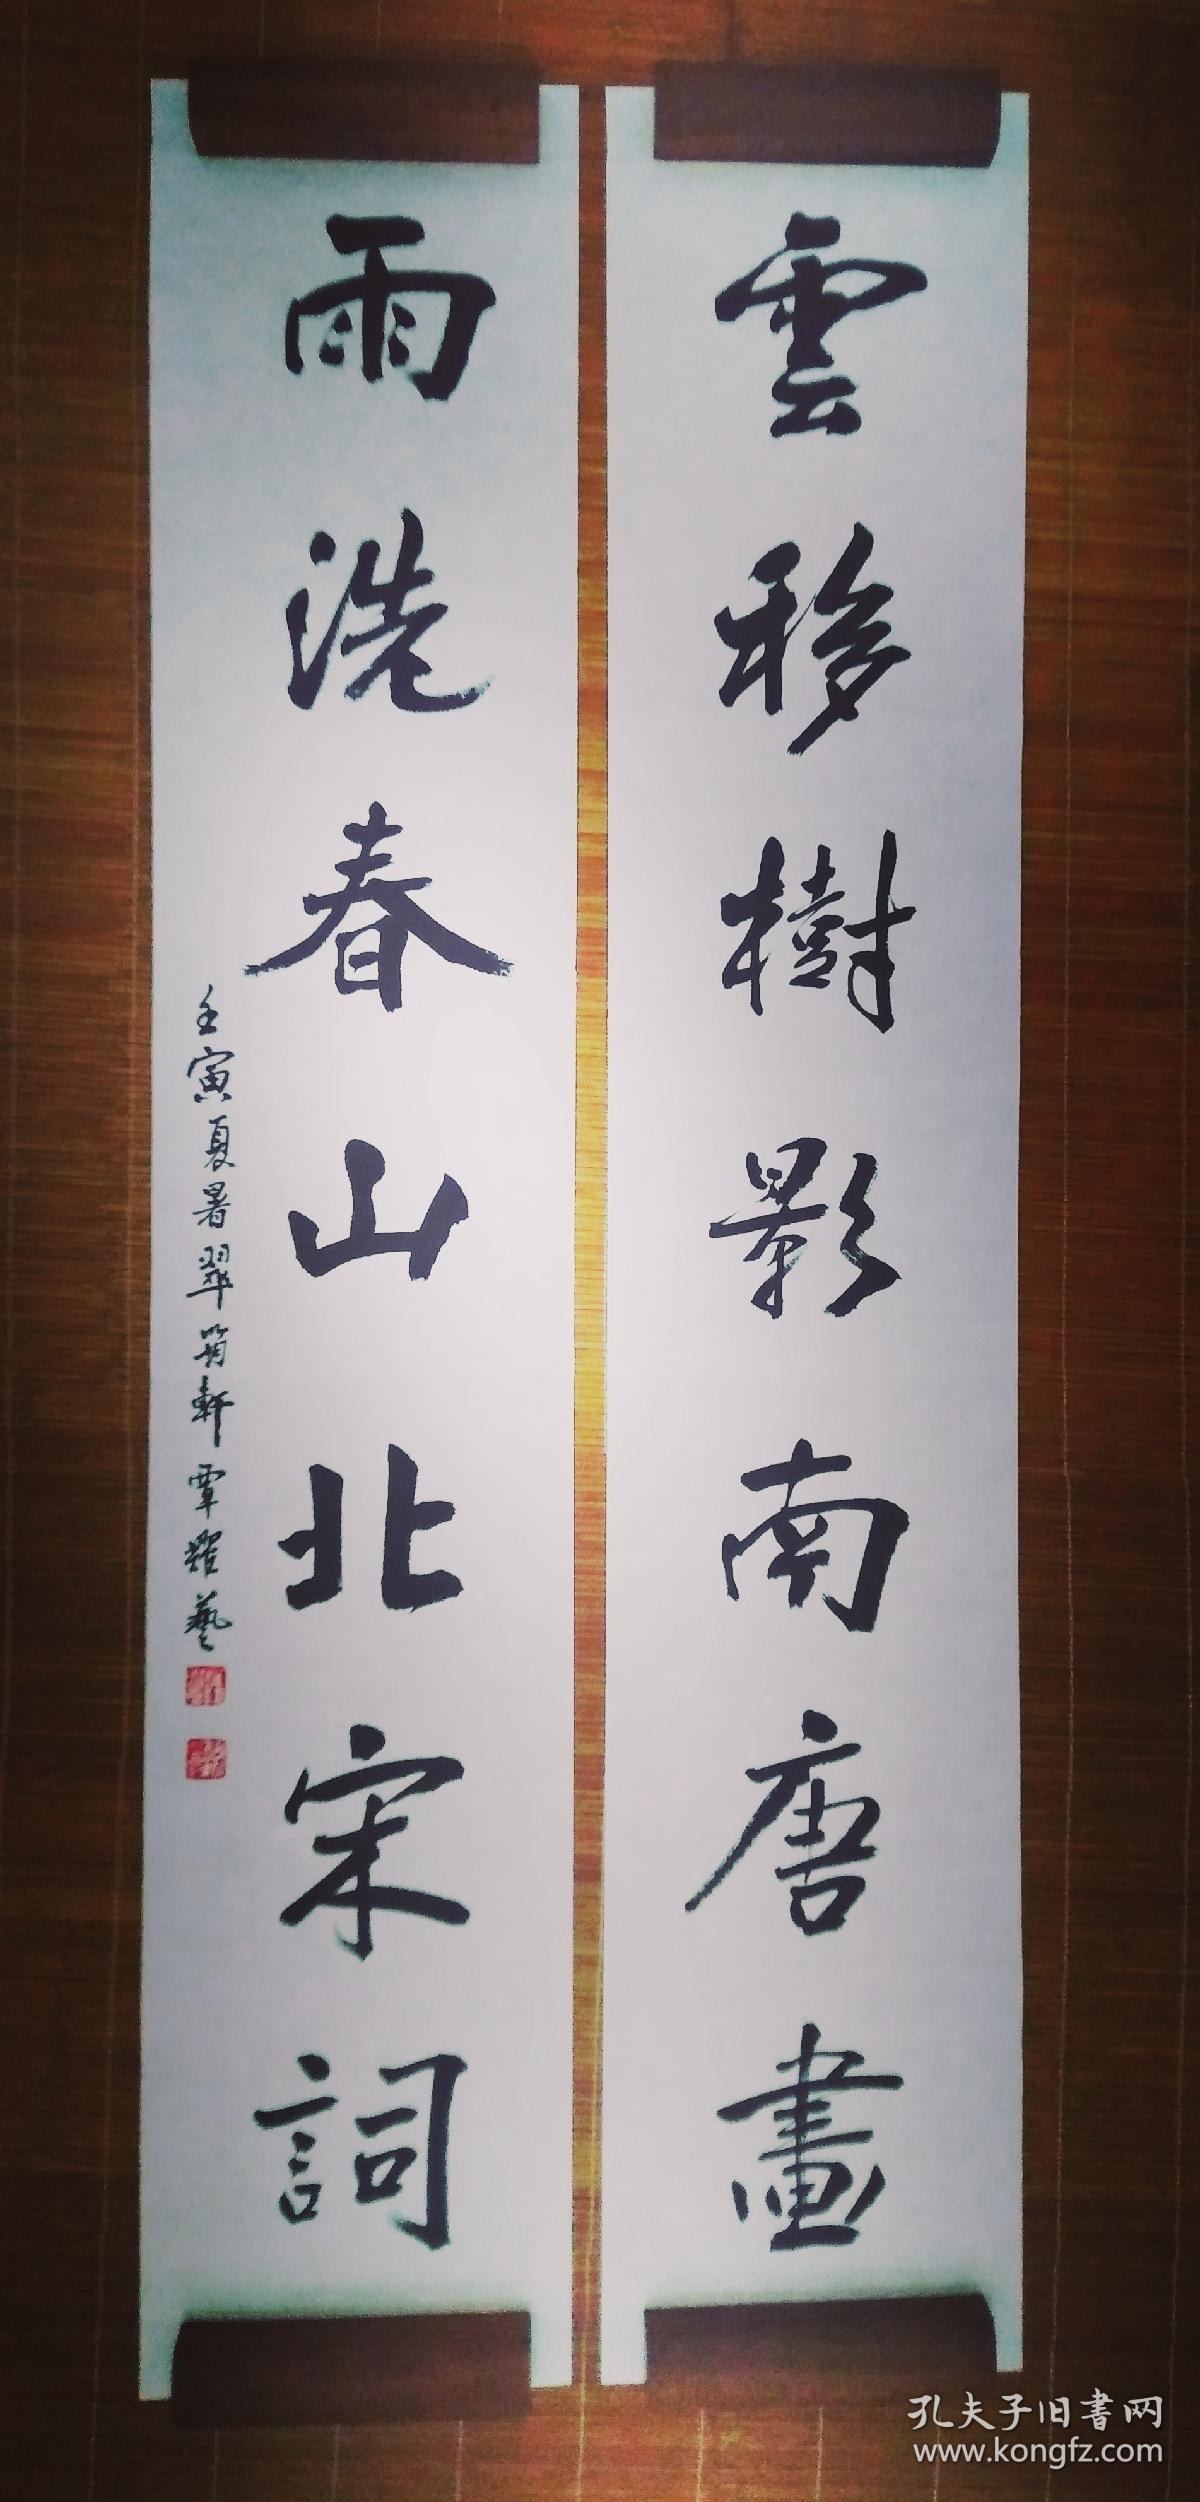 雲移樹影南唐畫
雨洗春山北宋詞
壬寅夏暑翠筠軒覃耀藝
孔夫子旧书网
www.kongfz.com